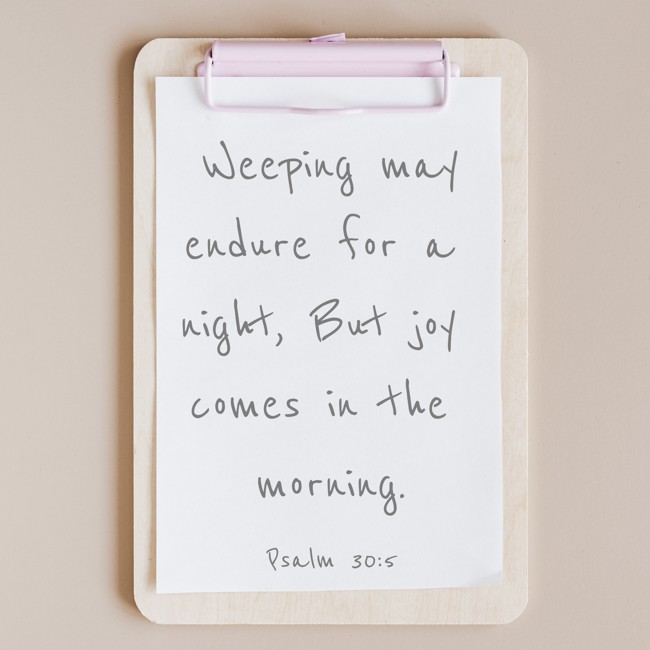 Weeping may
endure for a
night, But joy
comes in the
morning.
Psalm 30:5